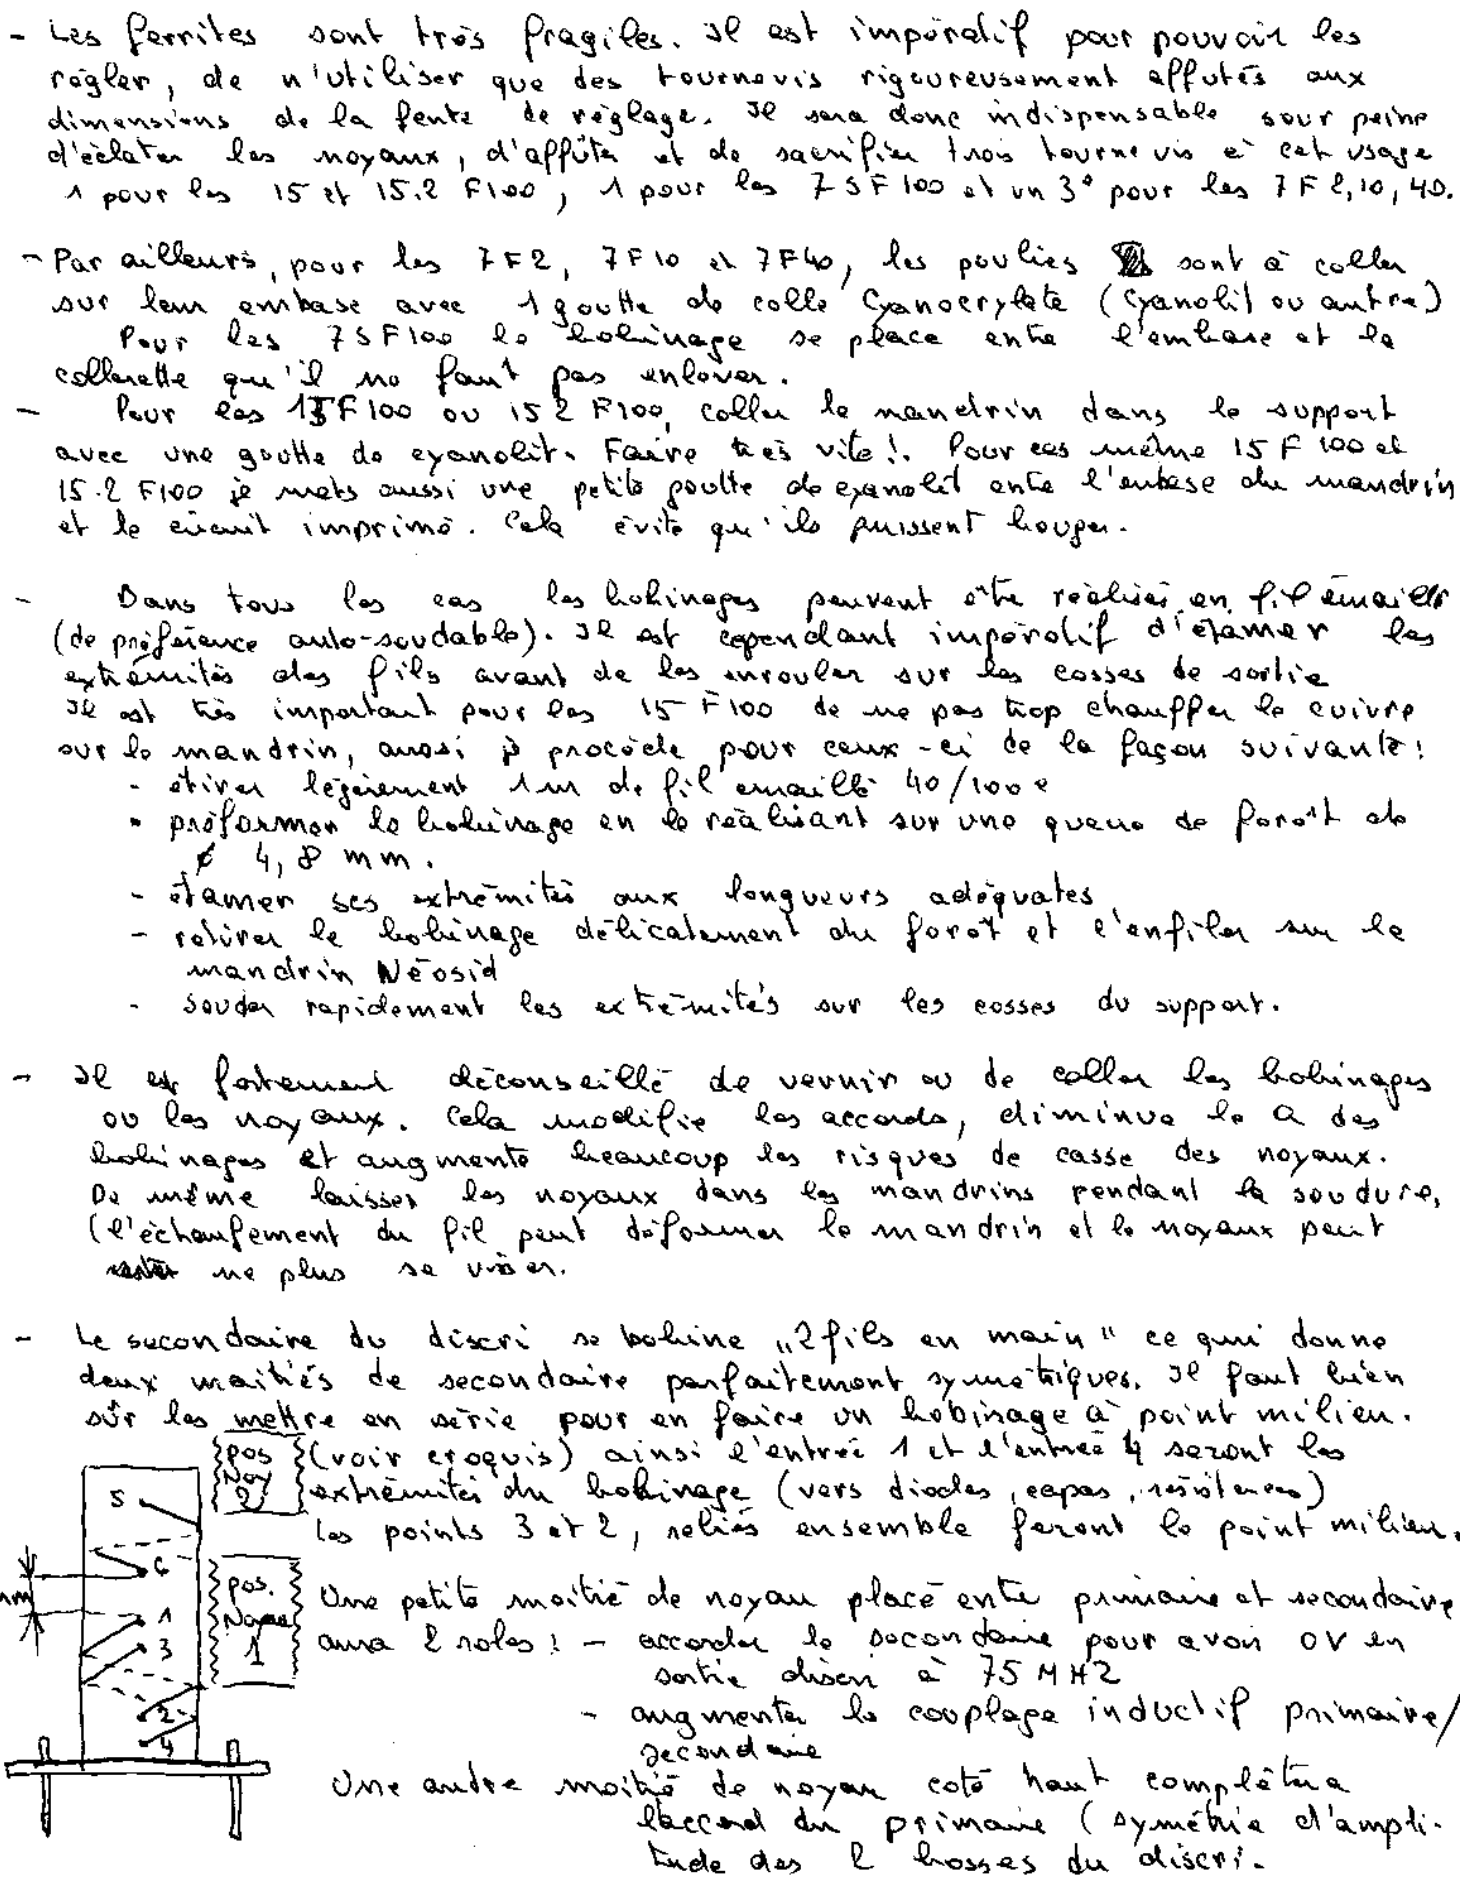 - Les ferrites sont très fragiles. Il est impératif pour pouvoir les
régler, de n'utiliser que des tournevis rigoureusement affutés aux
dimensions de la fente de réglage. Il sera donc indispensable sour peine
d'éclater les noyaux, d'affûter et de sacrifier trois tournevis à cet usage
1 pour les 15 et 15.2 F100, 1 pour les 7SF100 et un 3° pour les 7F2,10,40.
- Par ailleurs, pour les 7F2, 7F10 et 7F40, les poulies sont à coller
sur leur embase avec 1 goutte de colle Cyanocrylate (Cyanolit ou autre)
Pour les 7SF100 le bobinage se place entre l'embase et la
collerette qu'il ne faut pas enlever.
- Pour les 15F100 ou 152 F100, coller le mandrin dans le support
avec une goutte de cyanolit. Faire très vite!. Pour ces même 15F100 et
15.2 F100 je mets aussi une petite goutte de cyanolit entre l'embase du mandrin
et le circuit imprimé. Cela évite qu'ils puissent bouger.
- Dans tous les cas les bobinages peuvent être réalisés en fil émaillé
(de préférence auto-soudable). Il est cependant impératif d'étamer les
extrémités des fils avant de les enrouler sur les cosses de sortie
Il est très important pour les 15F100 de ne pas trop chauffer le cuivre
sur le mandrin, aussi je procède pour ceux-ci de la façon suivante:
- étirer légèrement 1m de fil emaillé 40/100e
- préformer le bobinage en le réalisant sur une queue de forêt de
ø 4,8 mm.
- étamer ses extrémités aux longueurs adéquates
- retirer le bobinage délicatement du forêt et l'enfiler sur le
mandrin Néosid
- souder rapidement les extrémités sur les cosses du support.
- Il est fortement déconseillé de vernir ou de coller les bobinages
ou les noyaux. Cela modifie les accords, diminue le Q des
bobinages et augmente beaucoup les risques de casse des noyaux.
De même laisser les noyaux dans les mandrins pendant la soudure,
(l'échaufement du fil peut déformer le mandrin et le noyaux peut
ne plus se visser.
- Le secondaire du discri se bobine "2 fils en main" ce qui donne
deux moitiés de secondaire parfaitement symétriques. Il faut bien
sûr les mettre en série pour en faire un bobinage à point milieu.
(voir croquis) ainsi l'entrée 1 et l'entrée 4 seront les
extrémités du bobinage (vers diodes, capas, résistances)
Les points 3 et 2, reliés ensemble feront le point milieu.
Une petite moitié de noyau placé entre primaire et secondaire
aura 2 roles: - accorder le secondaire pour avoir 0V en
sortie discri à 75 MHZ
- augmenter le couplage inductif primaire/
secondaire
Une autre moitié de noyau coté haut complètera
l'accord du primaire (symétrie d'ampli-
tude des 2 bosses du discri.
pos
Noy
2
5
6
1
3
2
4
pos.
Noyau
1